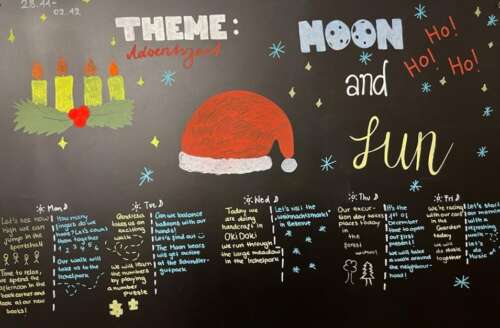 28.11-
02.12
THEME:
Adventszeit
MOON
and
Sun
Ho!
Ho!
Ho!
Mon D
Let's see how
high we can
jump in the
gymnasthall
Time to relax,
we spend the
afternoon in the
bookcorner and
look at our new
books!
How many
fingers do we
have? Let's count
them together
Our walk will
take us to the
Irchelpark
Tue D
takes us on an
exciting
walk
We will learn
the numbers
by playing
a number
puzzle
Can we balance
balloons with our
hands?
Let's find out
The Moon bears
will get active
at the
park
Wed D
Today we
are doing
handcraft in
Oki Doki
we run through
the large meadow
in the Irchelpark
Let's visit the
Weihnachtsmarkt
in Bellevue
Thu D
Our excur-
sion day takes
places today
in
the
forest
It's the 1st of
december
time to open
our first door!
We will take
a walk around
the neighbour-
hood!
Fri D
We're racing
with our cars in
the
Garden
today
We
will
make
together
Let's
do
Music